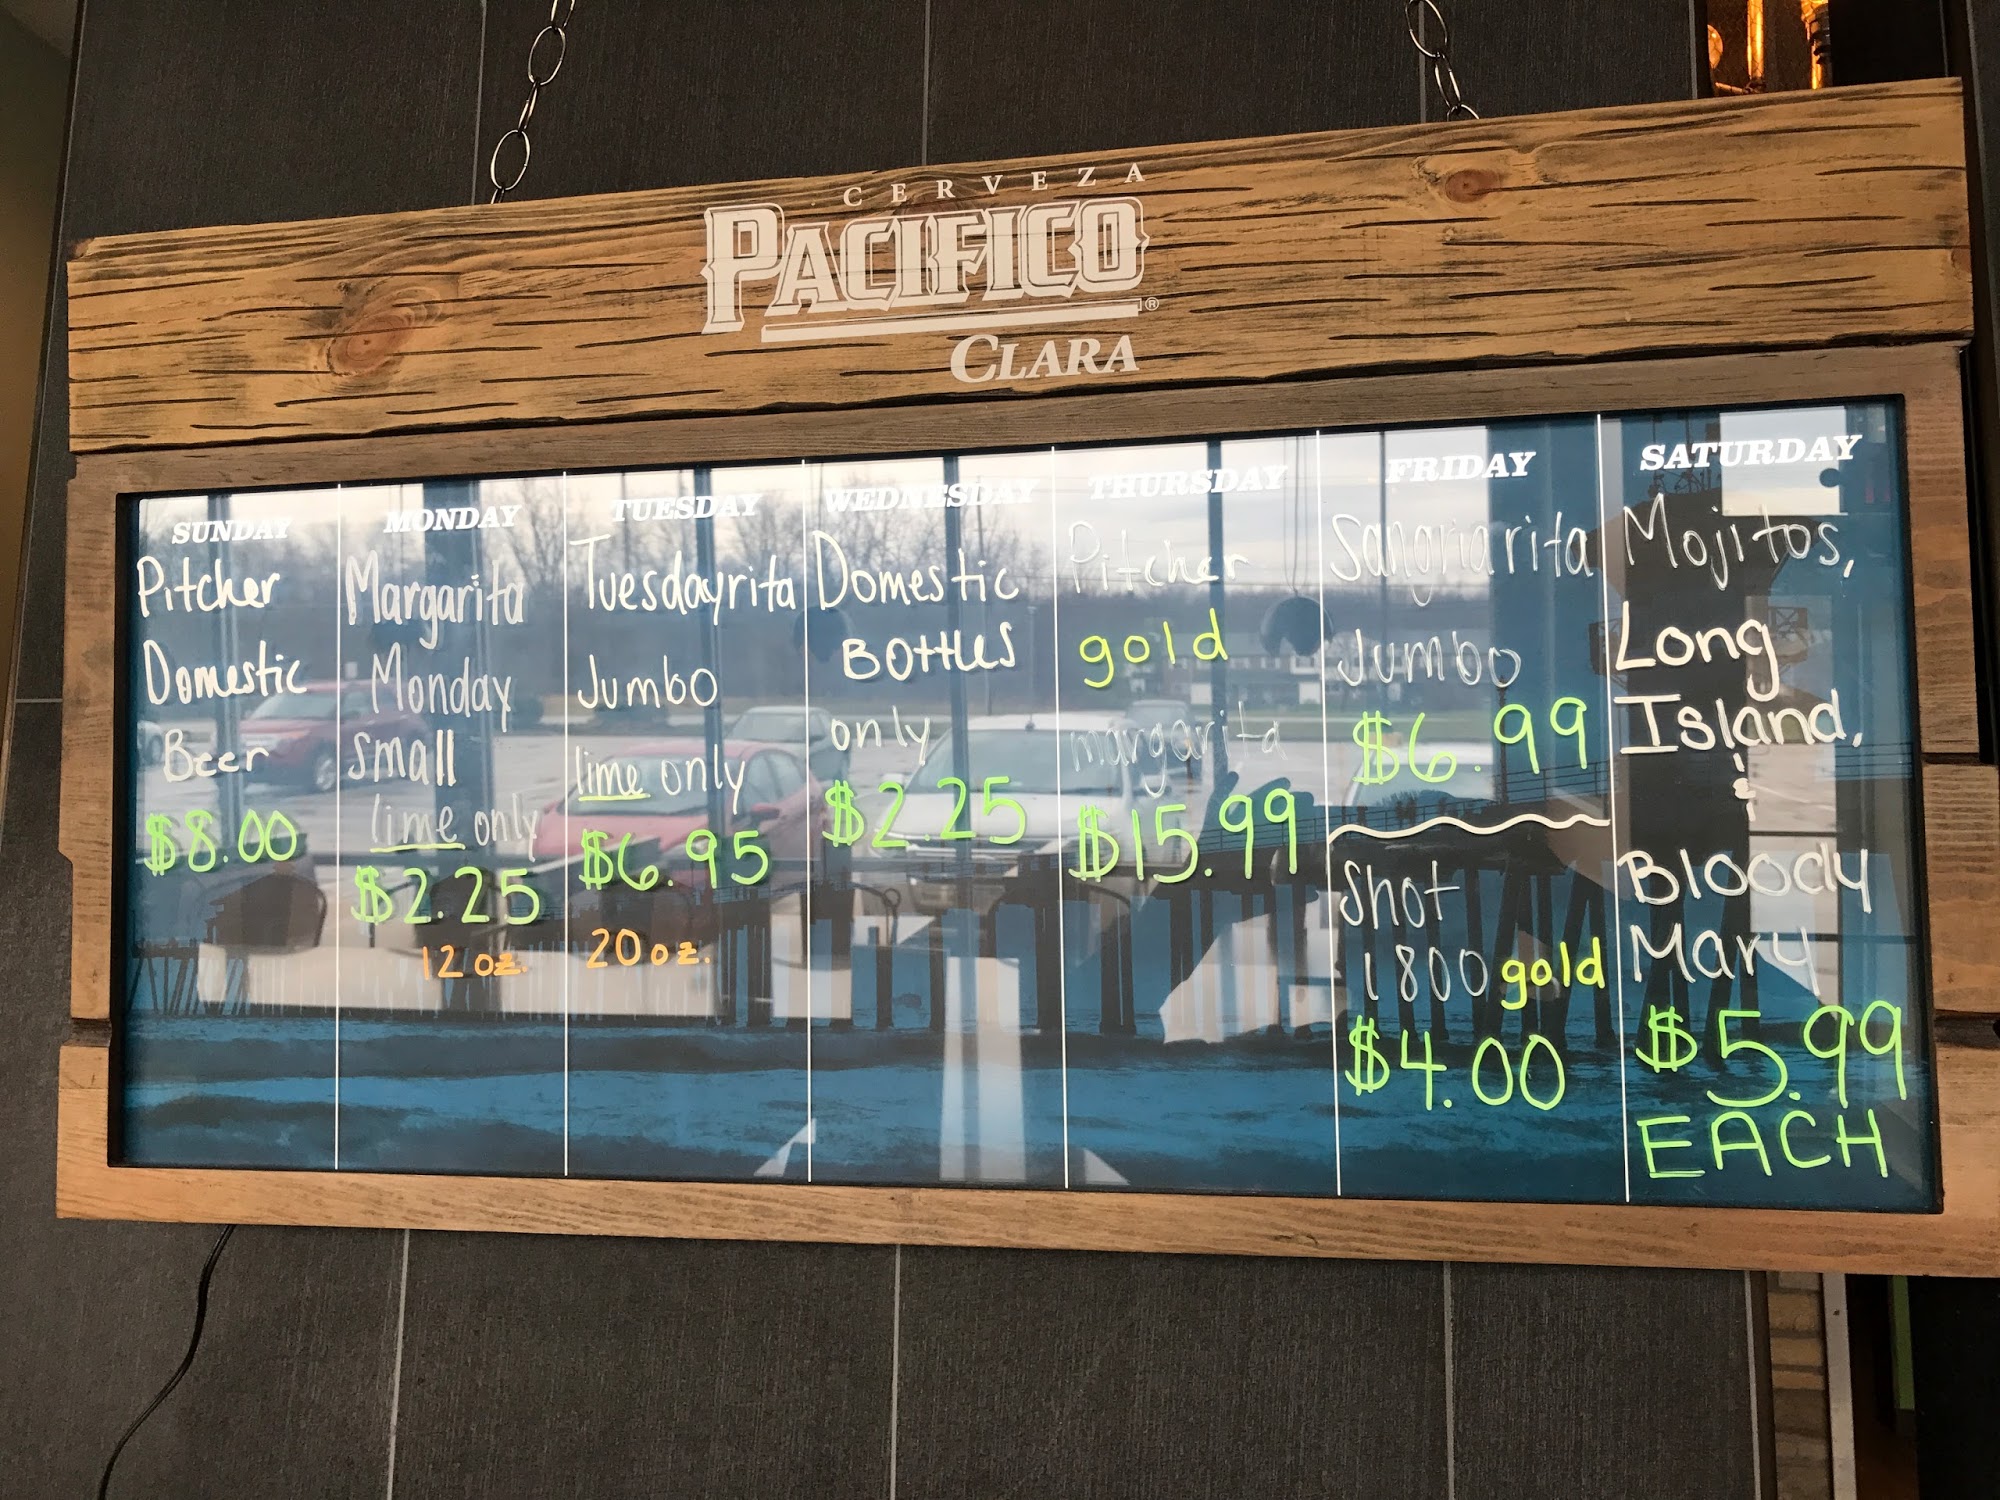 CERVEZA
PACIFICO®
CLARA
SUNDAY
Pitcher
Domestic
Beer
$8.00
MONDAY
Margarita
Monday
small
lime only
$2.25
12 oz.
TUESDAY
Tuesdayrita
Jumbo
lime only
$6.95
20 oz.
WEDNESDAY
Domestic
BOttles
only
$2.25
THURSDAY
Pitcher
gold
margarita
$15.99
FRIDAY
Sangriarita
Jumbo
$6.99
Shot
1800 gold
$4.00
SATURDAY
Mojitos,
Long
Island,
&
Bloody
Mary
$5.99
EACH